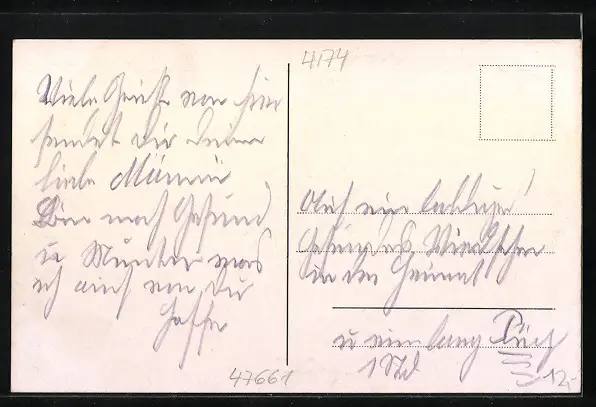 4174
Viele Grüße von hier
sendet dir deine
liebe Männi
Bin noch Gesund
u Munter was
ich auch von dir
hoffe
Auf ein baldiges
Gesundes Wiedersehen
in der Heimat
u ein lang
1 Std
47661
12,-